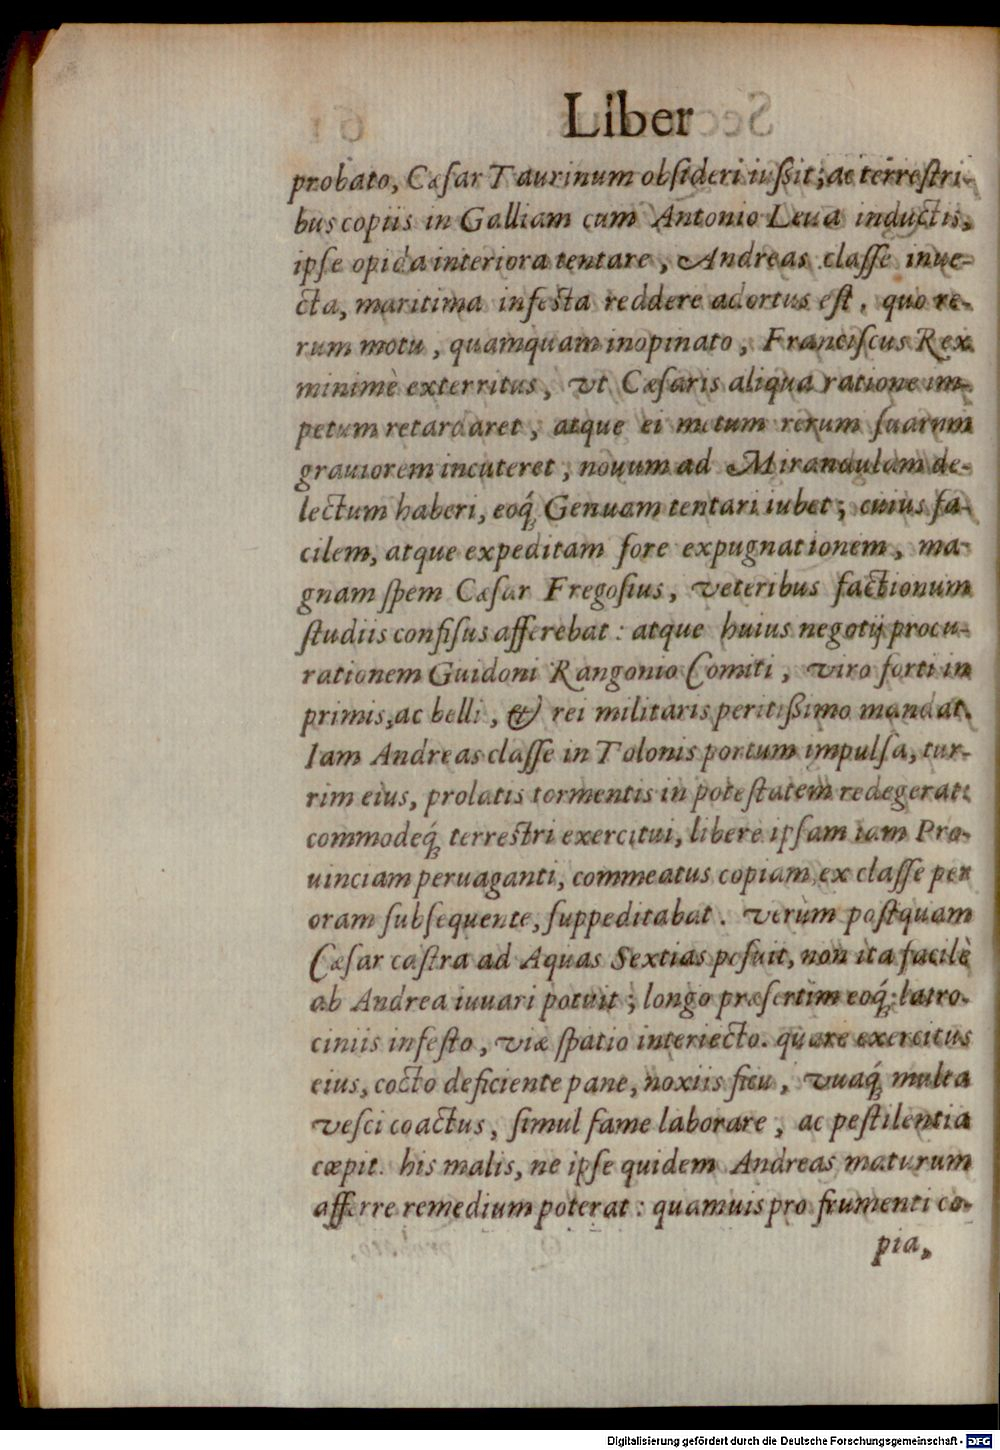 Liber
probato, Cæſar Taurinum obſideri iuſsit; ac terreſtri-
bus copiis in Galliam cum Antonio Leua inductis,
ipſe opida interiora tentare, Andreas claſſe inue-
cta, maritima infeſta reddere adortus eſt. quo re-
rum motu, quamquam inopinato, Franciſcus Rex
minimè exterritus, vt Cæſaris aliqua ratione im-
petum retardaret, atque ei metum rerum ſuarum
grauiorem incuteret, nouum ad Mirandulam de-
lectum haberi, eoq́; Genuam tentari iubet; cuius fa-
cilem, atque expeditam fore expugnationem, ma-
gnam ſpem Cæſar Fregoſius, veteribus factionum
ſtudiis confiſus afferebat: atque huius negotij procu-
rationem Guidoni Rangonio Comiti, viro forti in
primis, ac belli, & rei militaris peritiſsimo mandat.
Iam Andreas claſſe in Tolonis portum impulſa, tur-
rim eius, prolatis tormentis in poteſtatem redegerat:
commodeq́; terreſtri exercitui, libere ipſam iam Pro-
uinciam peruaganti, commeatus copiam ex claſſe per
oram ſubſequente, ſuppeditabat. verùm poſtquam
Cæſar caſtra ad Aquas Sextias poſuit, non ita facilè
ab Andrea iuuari potuit; longo præſertim eoq́; latro-
ciniis infeſto, viæ ſpatio interiecto. quare exercitus
eius, cocto deficiente pane, noxiis ficu, vuaq́; multa
veſci coactus, ſimul fame laborare, ac peſtilentia
cœpit. his malis, ne ipſe quidem Andreas maturum
afferre remedium poterat: quamuis pro frumenti co-
pia,
Digitalisierung gefördert durch die Deutsche Forschungsgemeinschaft - DFG